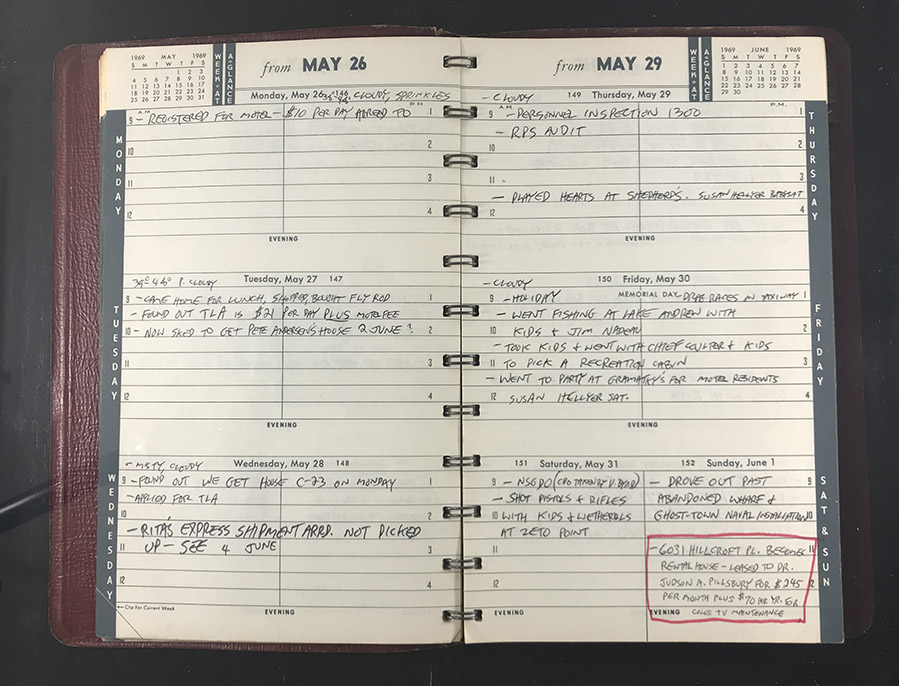 1969 MAY 1969
S M T W T F S
1 2 3
4 5 6 7 8 9 10
11 12 13 14 15 16 17
18 19 20 21 22 23 24
25 26 27 28 29 30 31
WEEK-AT
A-GLANCE
from MAY 26
Monday, May 26 146 CLOUDY, SPRINKLES
MONDAY
A.M.
P.M.
9 - REGISTERED FOR MOTEL - $10 PER DAY AGREED TO 1
10 2
11 3
12 4
EVENING
35° 45° P. CLOUDY Tuesday, May 27 147
TUESDAY
9 - CAME HOME FOR LUNCH, SHOPPED, BOUGHT FLY ROD 1
- FOUND OUT TLA IS $21 PER DAY PLUS MOTEL FEE
10 - NOW SKED TO GET PETE ANDERSEN'S HOUSE 2 JUNE? 2
11 3
12 4
EVENING
- MISTY, CLOUDY Wednesday, May 28 148
WEDNESDAY
9 - FOUND OUT WE GET HOUSE C-23 ON MONDAY 1
- APPLIED FOR TLA
2
- RITA'S EXPRESS SHIPMENT ARRD. NOT PICKED
11 UP - SEE 4 JUNE 3
12 4
← Clip For Current Week
EVENING
from MAY 29
WEEK-AT
A-GLANCE
1969 JUNE 1969
S M T W T F S
1 2 3 4 5 6 7
8 9 10 11 12 13 14
15 16 17 18 19 20 21
22 23 24 25 26 27 28
29 30
- CLOUDY 149 Thursday, May 29
THURSDAY
A.M.
P.M.
9 - PERSONNEL INSPECTION 1300 1
- RPS AUDIT
10 2
11 3
- PLAYED HEARTS AT SHEPHERD'S. SUSAN HELLYER BABYSAT
12 4
EVENING
- CLOUDY 150 Friday, May 30
FRIDAY
MEMORIAL DAY - DRAG RACES ON TAXIWAY 1
9 - HOLIDAY
- WENT FISHING AT LAKE ANDREW WITH
10 KIDS & JIM NADEAU 2
- TOOK KIDS & WENT WITH CHIEF COULTER & KIDS
11 TO PICK A RECREATION CABIN 3
- WENT TO PARTY AT GRAMATKY'S FOR MOTEL RESIDENTS
12 SUSAN HELLYER SAT. 4
EVENING
151 Saturday, May 31
9 - NSGDO (CPO TAKEN BY V. BYRD)
- SHOT PISTOLS & RIFLES
10 WITH KIDS & WETHEROLS
AT ZETO POINT
11
12
152 Sunday, June 1
SAT & SUN
- DROVE OUT PAST 9
ABANDONED WHARF &
GHOST-TOWN NAVAL INSTALLATION 10
- 6031 HILLCROFT PL. BECOMES 11
RENTAL HOUSE - LEASED TO DR.
JUDSON A. PILLSBURY FOR $245 12
PER MONTH PLUS $70 PER YR. FOR
EVENING COLOR TV MAINTENANCE